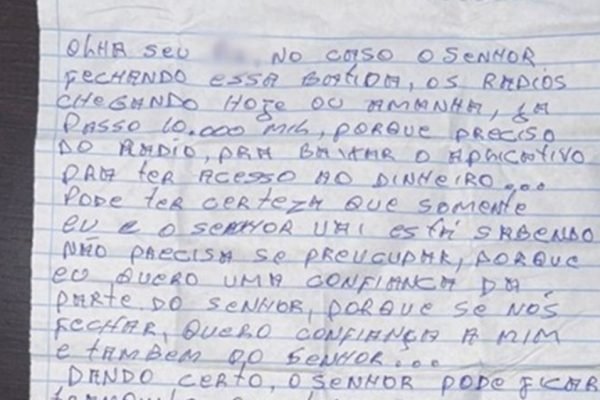 OLHA SEU , NO CASO O SENHOR
FECHANDO ESSA BATIDA, OS RADIOS
CHEGANDO HOJE OU AMANHA, JA
PASSO 10.000 MIL, PORQUE PRECISO
DO RADIO, PRA BAIXAR O APLICATIVO
PRA TER ACESSO AO DINHEIRO...
PODE TER CERTEZA QUE SOMENTE
EU E O SENHOR VAI ESTÁ SABENDO
NÃO PRECISA SE PREUCUPAR, PORQUE
EU QUERO UMA CONFIANÇA DA
PARTE DO SENHOR, PORQUE SE NOS
FECHAR, QUERO CONFIANÇA A MIM
E TAMBEM AO SENHOR...
DANDO CERTO, O SENHOR PODE FICAR